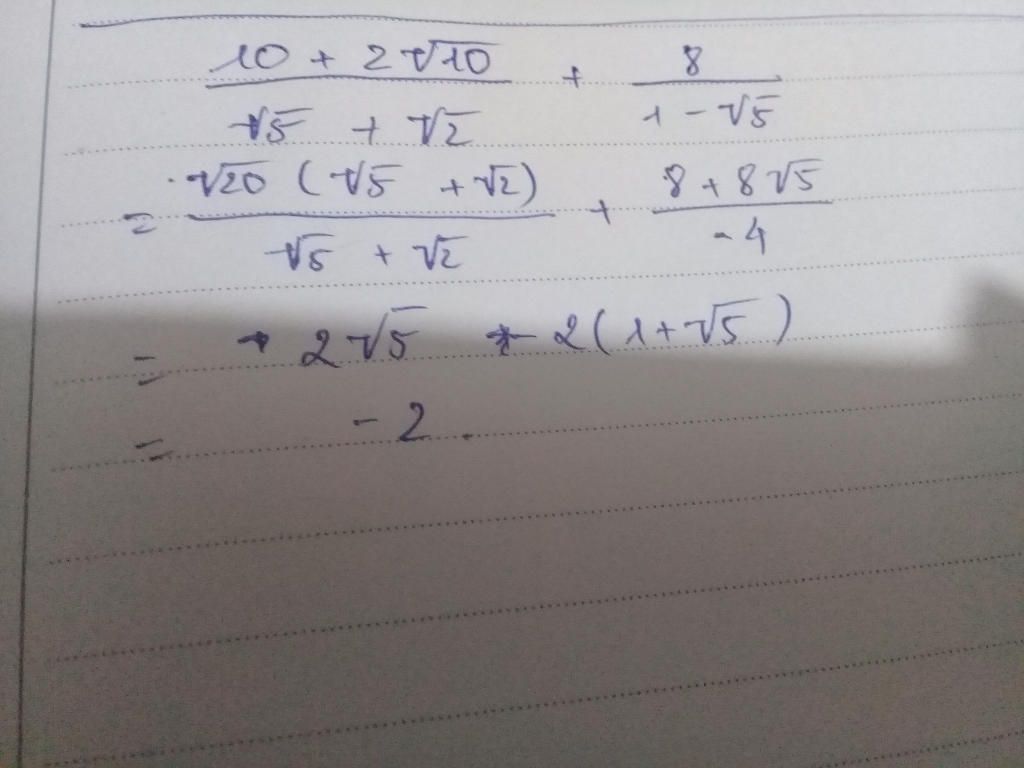 (10 + 2√10)/(√5 + √2) + 8/(1 - √5)
= √20 (√5 + √2)/(√5 + √2) + (8 + 8√5)/-4
= 2√5 - 2(1 + √5)
= -2.